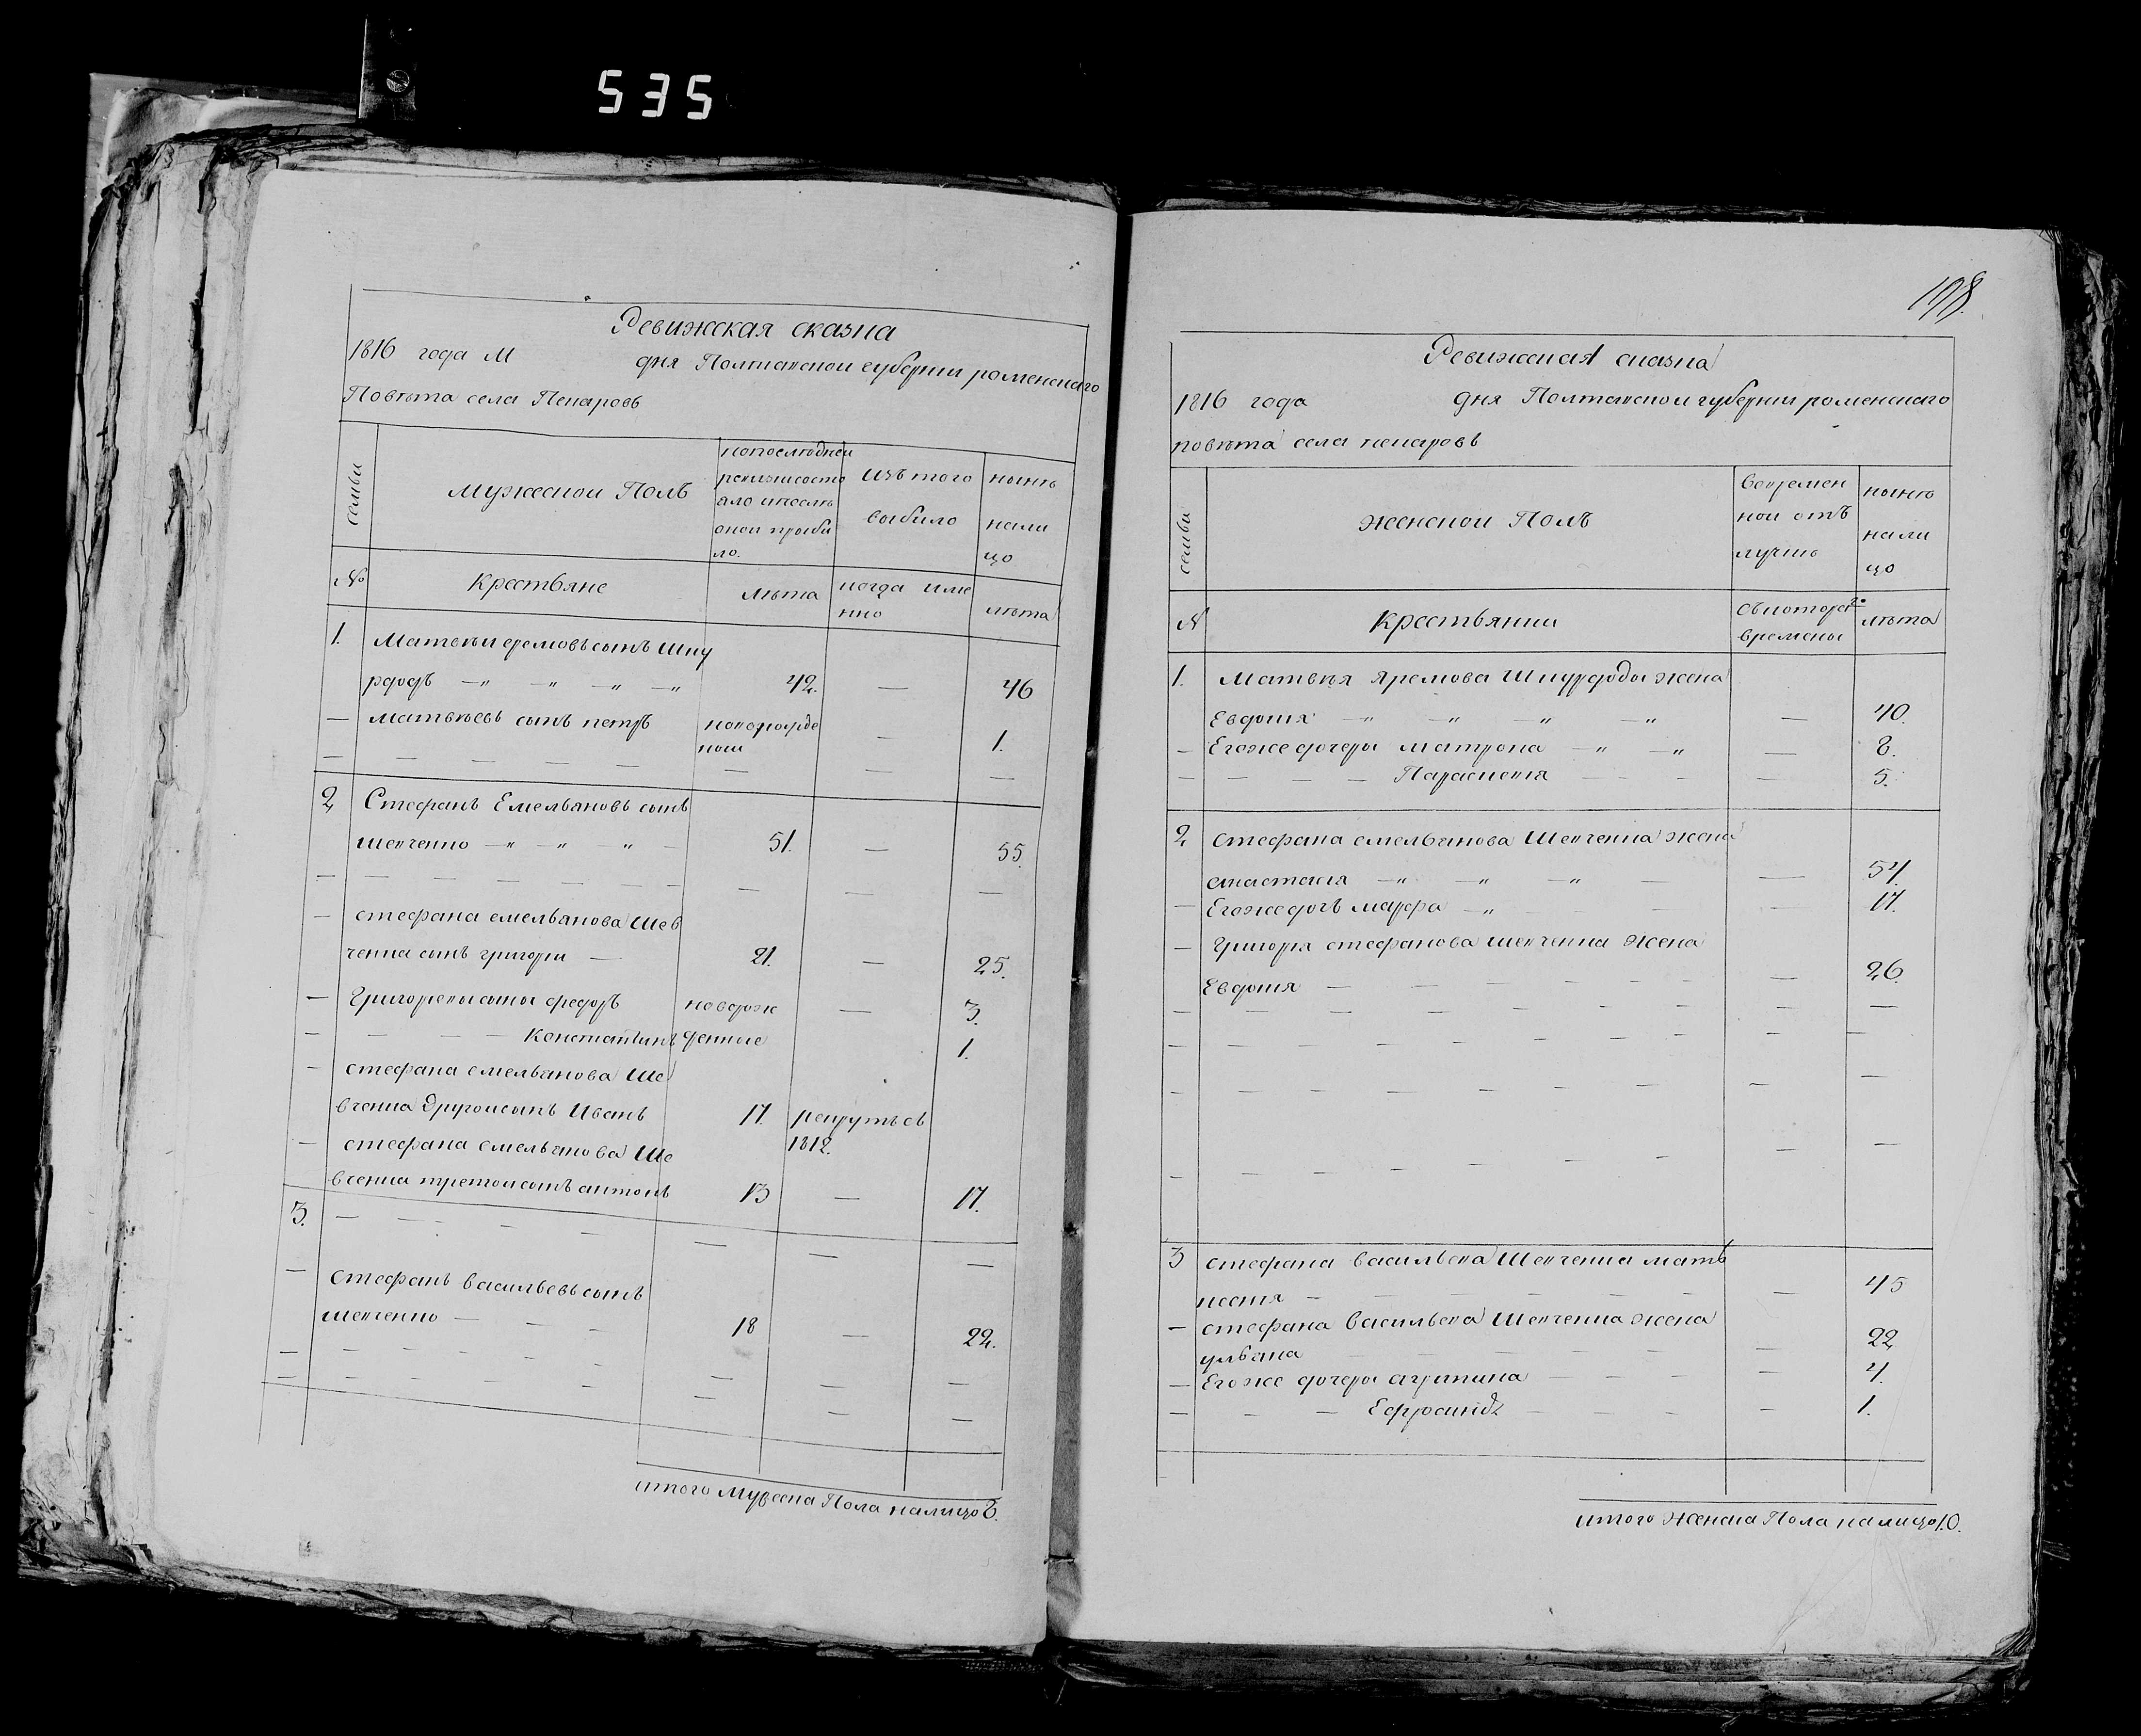 535
Ревижская сказка
1816 года М дня Полтавской губернии роменскаго
Повѣта села Пекаровъ
семьи
мужеской Полъ
попоследней
ревизисосто
ало ипослѣ
оной прибы
ло.
Изъ того
выбило
нынѣ
нали
цо
№
Крестьяне
лѣта
когда име
нно
лѣта
1. Матвѣй еремовъ сынъ Шку
рдодъ —„ —„ —„ —„ 42. — 46
— матвѣевъ сынъ петръ новорожде
ной — 1.
2 Стефанъ Емельяновъ сынъ
шевченко —„ —„ —„ — 51. — 55.
— стефана емельянова Шев
ченка сынъ григори — 21. — 25.
— Григориевы сыны федоръ новорож — 3.
— — — — Константинъ денные 1.
— стефана емельянова Ше
вченка другойсынъ Иванъ 17. рекрутъ съ
1812.
— стефана емельянова Ше
вченка третойсынъ антонъ 13 — 17.
3. — — — — —
— стефанъ васильевъ сынъ
шевченко — — — 18 — 22.
итого Мужеска Пола налицо 8.
198.
Ревижская сказка
1816 года дня Полтавской губернии роменскаго
повѣта села пекаровъ
семьи
женской Полъ
Вовремен
ной отъ
лучкѣ
нынѣ
нали
цо
№
Крестьянки
Съкотораго
времены
лѣта
1. Матвѣя Яремова Шкурдода жена
Евдокия —„ —„ —„ —„ — 40.
— Егоже дочери матрона —„ —„ — 8.
— — — — Параскевия — — — — 5.
2 стефана емельянова Шевченка жена
анастасия —„ —„ —„ — — 54.
— Егоже дочь марфа —„ — 17.
— Григория стефанова шевченка жена
Евдокия — — — — — — 26.
3 стефана васильева Шевченка мать
настя — — — — — 45
— стефана васильева Шевченка жена
ульяна — — — — — 22
— Егоже дочери агрипина — — — — 4.
— — — Ефросинѣ — — — — 1.
итого женска Пола налицо 10.